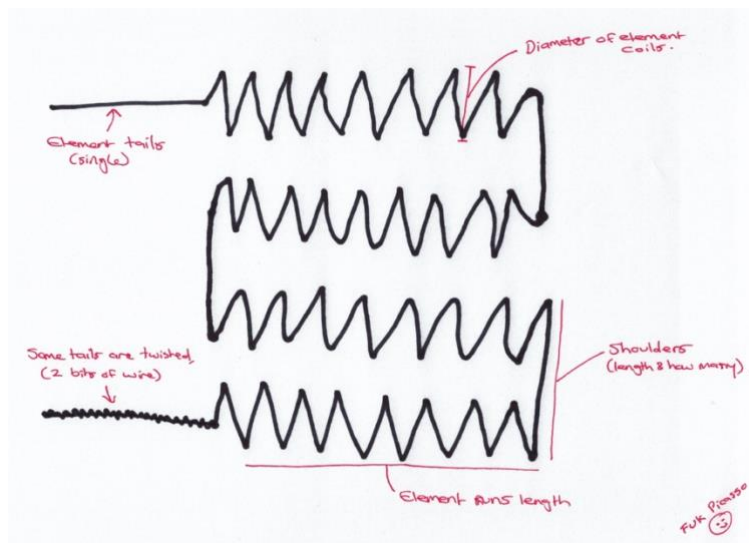 Diameter of element
coils.
Element tails
(single)
Some tails are twisted,
(2 bits of wire)
Shoulders
(length & how many)
Element runs length
FUK Picasso